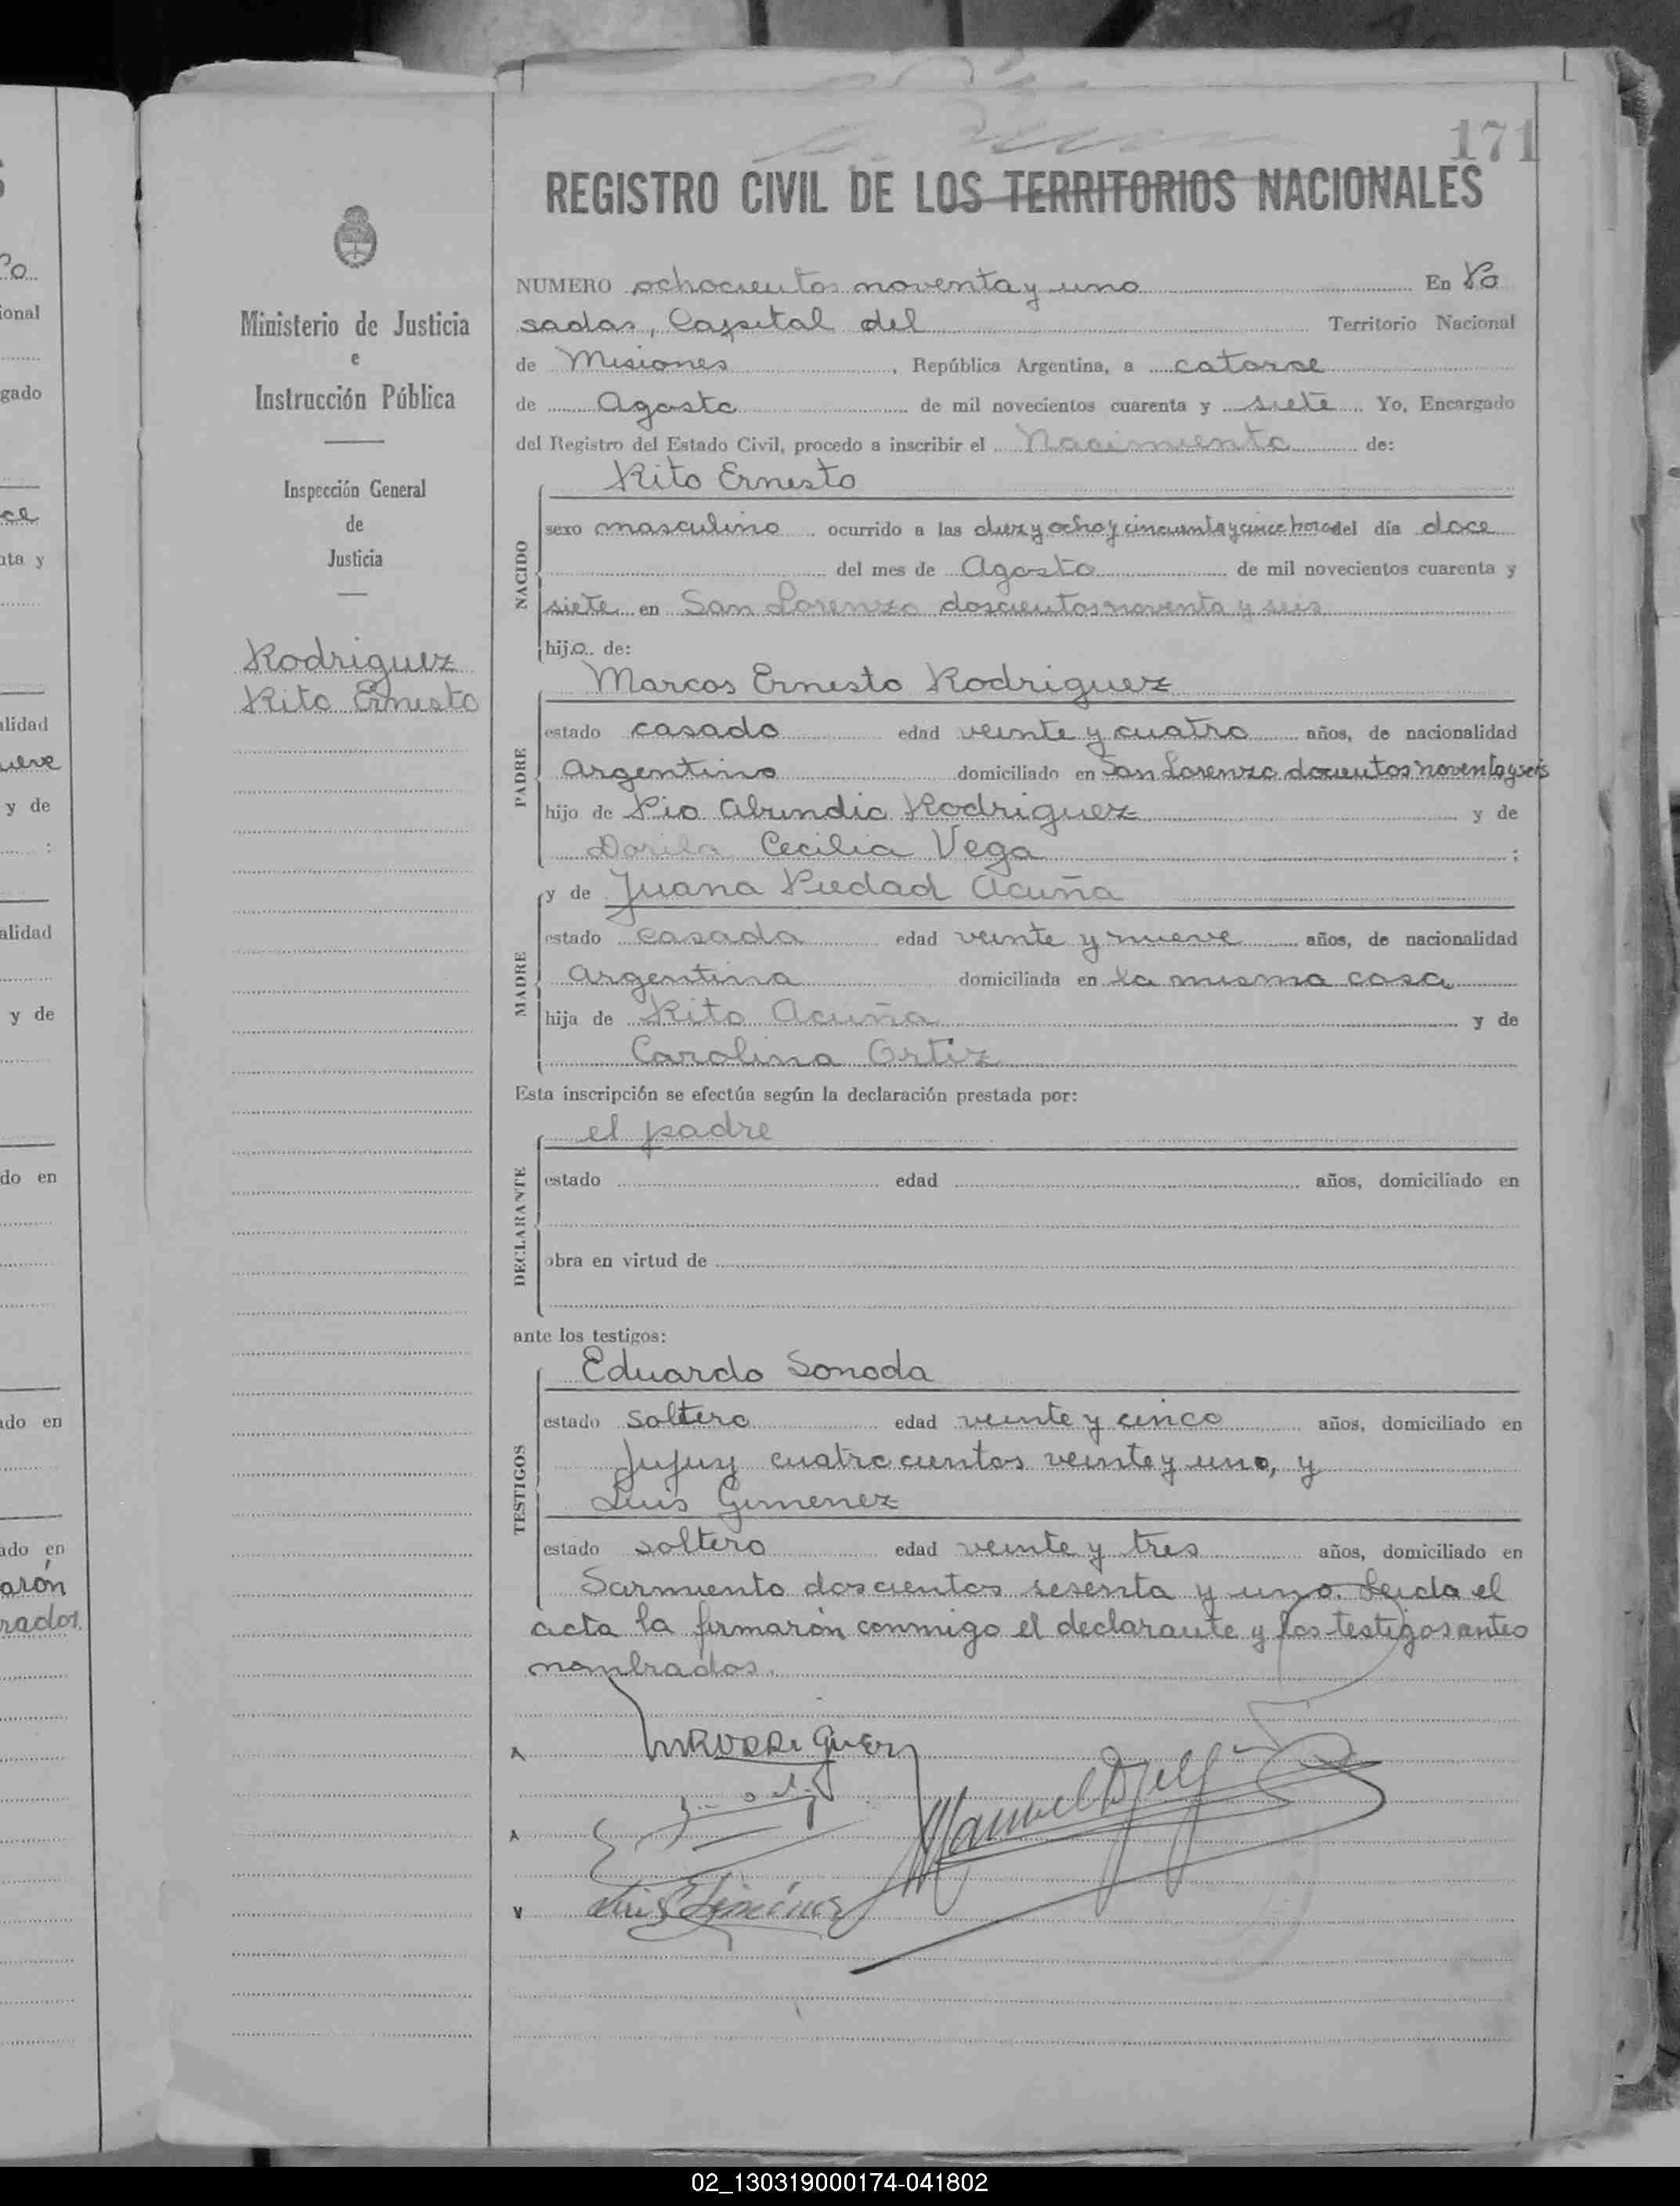 171
REGISTRO CIVIL DE LOS TERRITORIOS NACIONALES
NUMERO ochocientos noventa y uno En Po
sadas, Capital del Territorio Nacional
de Misiones, República Argentina, a catorce
de Agosto de mil novecientos cuarenta y siete Yo, Encargado
del Registro del Estado Civil, procedo a inscribir el Nacimiento de:
Rito Ernesto
NACIDO
sexo masculino ocurrido a las diez y ocho y cincuenta y cinco horas del día doce
del mes de Agosto de mil novecientos cuarenta y
siete en San Lorenzo doscientos noventa y seis
hijo de:
Marcos Ernesto Rodriguez
PADRE
estado casado edad veinte y cuatro años, de nacionalidad
Argentino domiciliado en San Lorenzo docientos noventa y seis
hijo de Pio Abundio Rodriguez y de
Cecilia Vega ;
y de Juana Piedad Acuña
MADRE
estado casada edad veinte y nueve años, de nacionalidad
Argentina domiciliada en la misma casa
hija de Rito Acuña y de
Carolina Ortiz
Esta inscripción se efectúa según la declaración prestada por:
el padre
DECLARANTE
estado edad años, domiciliado en
obra en virtud de
ante los testigos:
Eduardo Sonoda
TESTIGOS
estado soltero edad veinte y cinco años, domiciliado en
Jujuy cuatrocientos veinte y uno, y
Luis Gimenez
estado soltero edad veinte y tres años, domiciliado en
Sarmiento doscientos sesenta y uno. Leida el
acta la firmarón conmigo el declarante y los testigos antes
nombrados.
Ministerio de Justicia
e
Instrucción Pública
Inspección General
de
Justicia
Rodriguez
Rito Ernesto
02_130319000174-041802